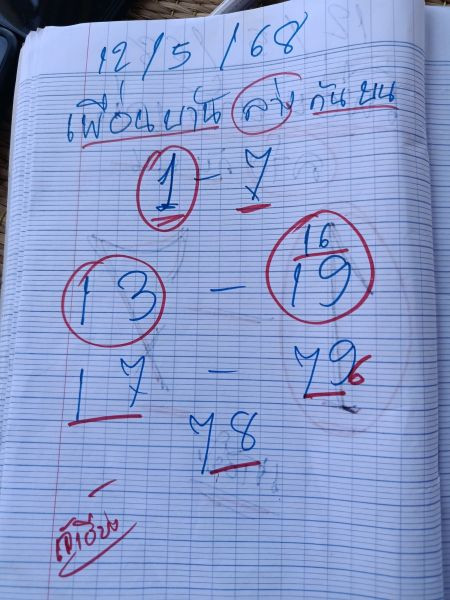 12/5/68
เพื่อนบ้าน ล่าง กันบน
1 - 7
16
13 - 19
17 - 796
78